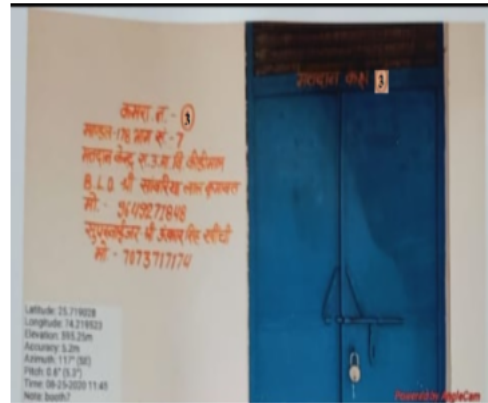 मतदान कक्ष 3
कमरा नं.- 3
मण्डल-178 भाग सं.-7
मतदान केन्द्र रा.उ.मा.वि
B.L.O श्री सांवरिया लाल कुमावत
मो.- 9649272848
सुपरवाईजर श्री ओंकार सिंह
मो.- 7073717174
Latitude: 25.719028
Longitude: 74.219523
Elevation: 393.25m
Accuracy: 5.2m
Azimuth: 117° (SE)
Pitch: 0.6° (5.3°)
Time: 08-25-2020 11:43
Note: booth7
Powered by AngleCam